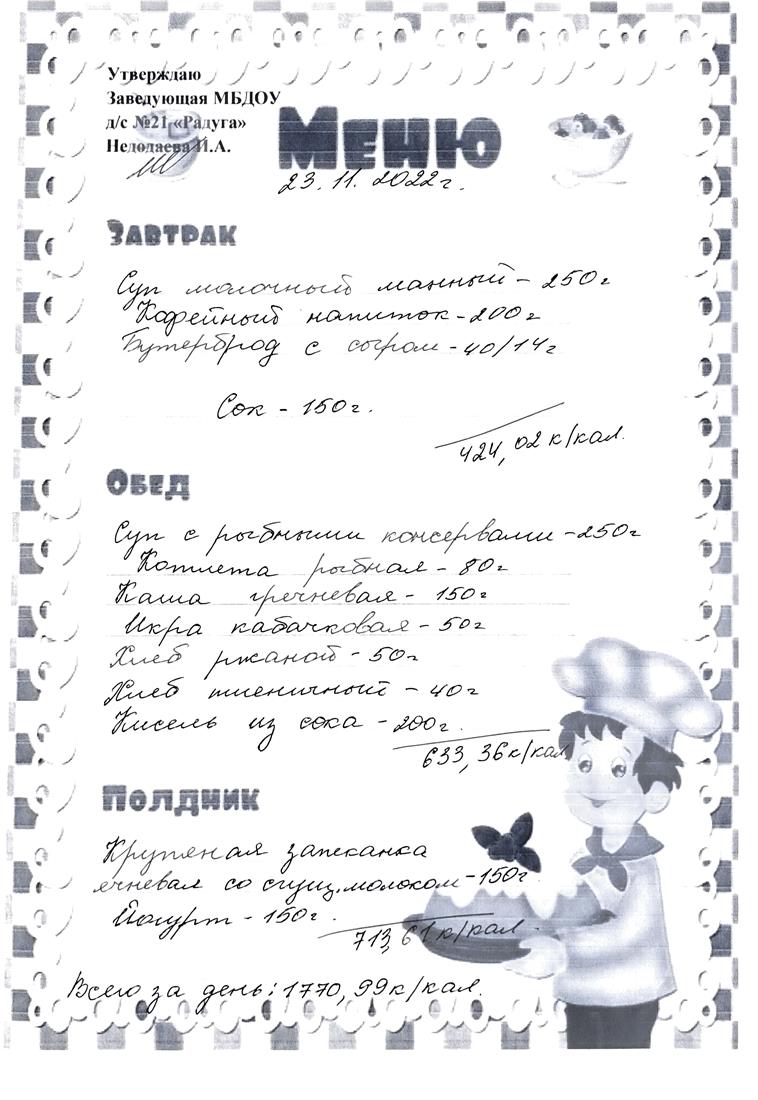 Утверждаю
Заведующая МБДОУ
д/с №21 «Радуга»
Недодаева И.А.
Меню
23.11.2022г.
Завтрак
Суп молочный манный - 250г
Кофейный напиток - 200г
Бутерброд с сыром - 40/14г
Сок - 150г.
424,02 к/кал.
Обед
Суп с рыбными консервами - 250г
Котлета рыбная - 80г
Каша гречневая - 150г
Икра кабачковая - 50г
Хлеб ржаной - 50г
Хлеб пшеничный - 40г
Кисель из сока - 200г.
633,36 к/кал
Полдник
Крупяная запеканка
ячневая со сгущ. молоком - 150г
Йогурт - 150г.
713,61 к/кал
Всего за день: 1770,99 к/кал.